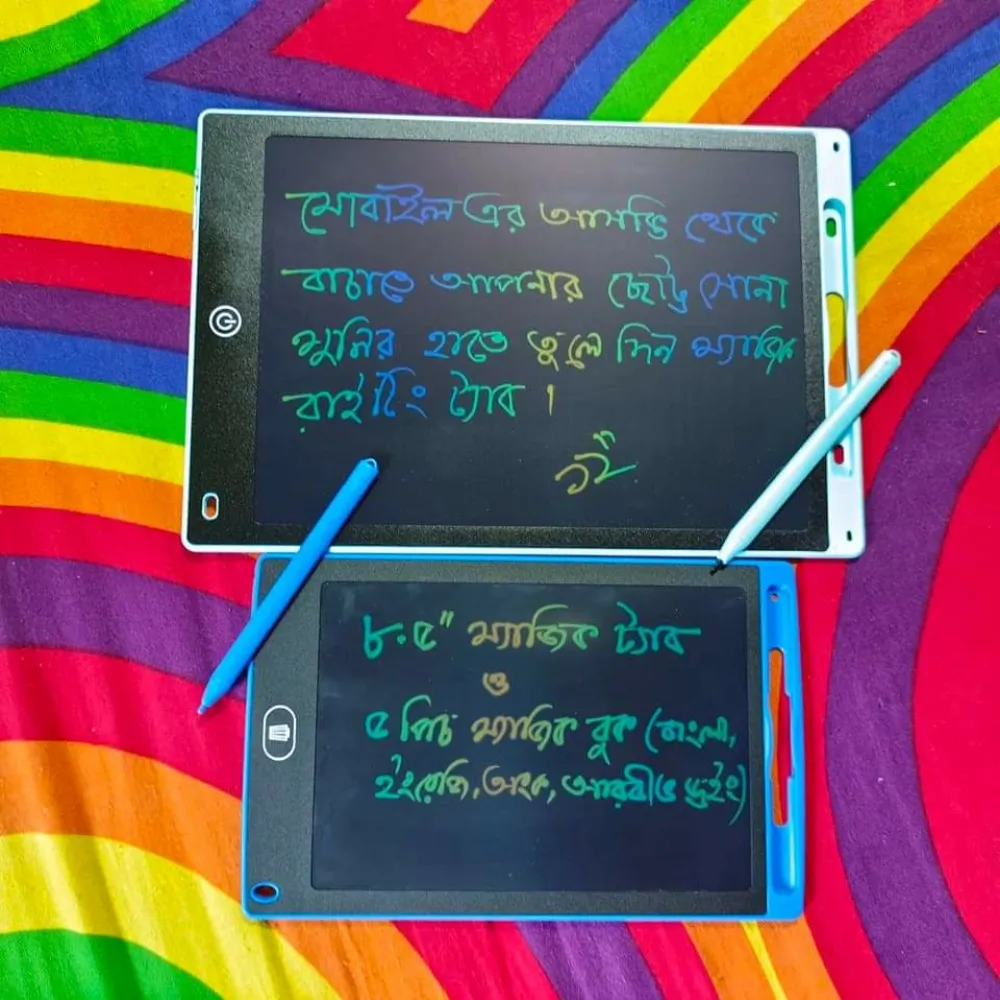 মোবাইল এর আসক্তি থেকে
বাচাতে আপনার ছোট্ট সোনা
মুনির হাতে তুলে দিন ম্যাজিক
রাইটিং ট্যাব।
১২"
৮.৫" ম্যাজিক ট্যাব
ও
৫ পিচ ম্যাজিক বুক (বাংলা,
ইংরেজি, অংক, আরবী ও ড্রইং)